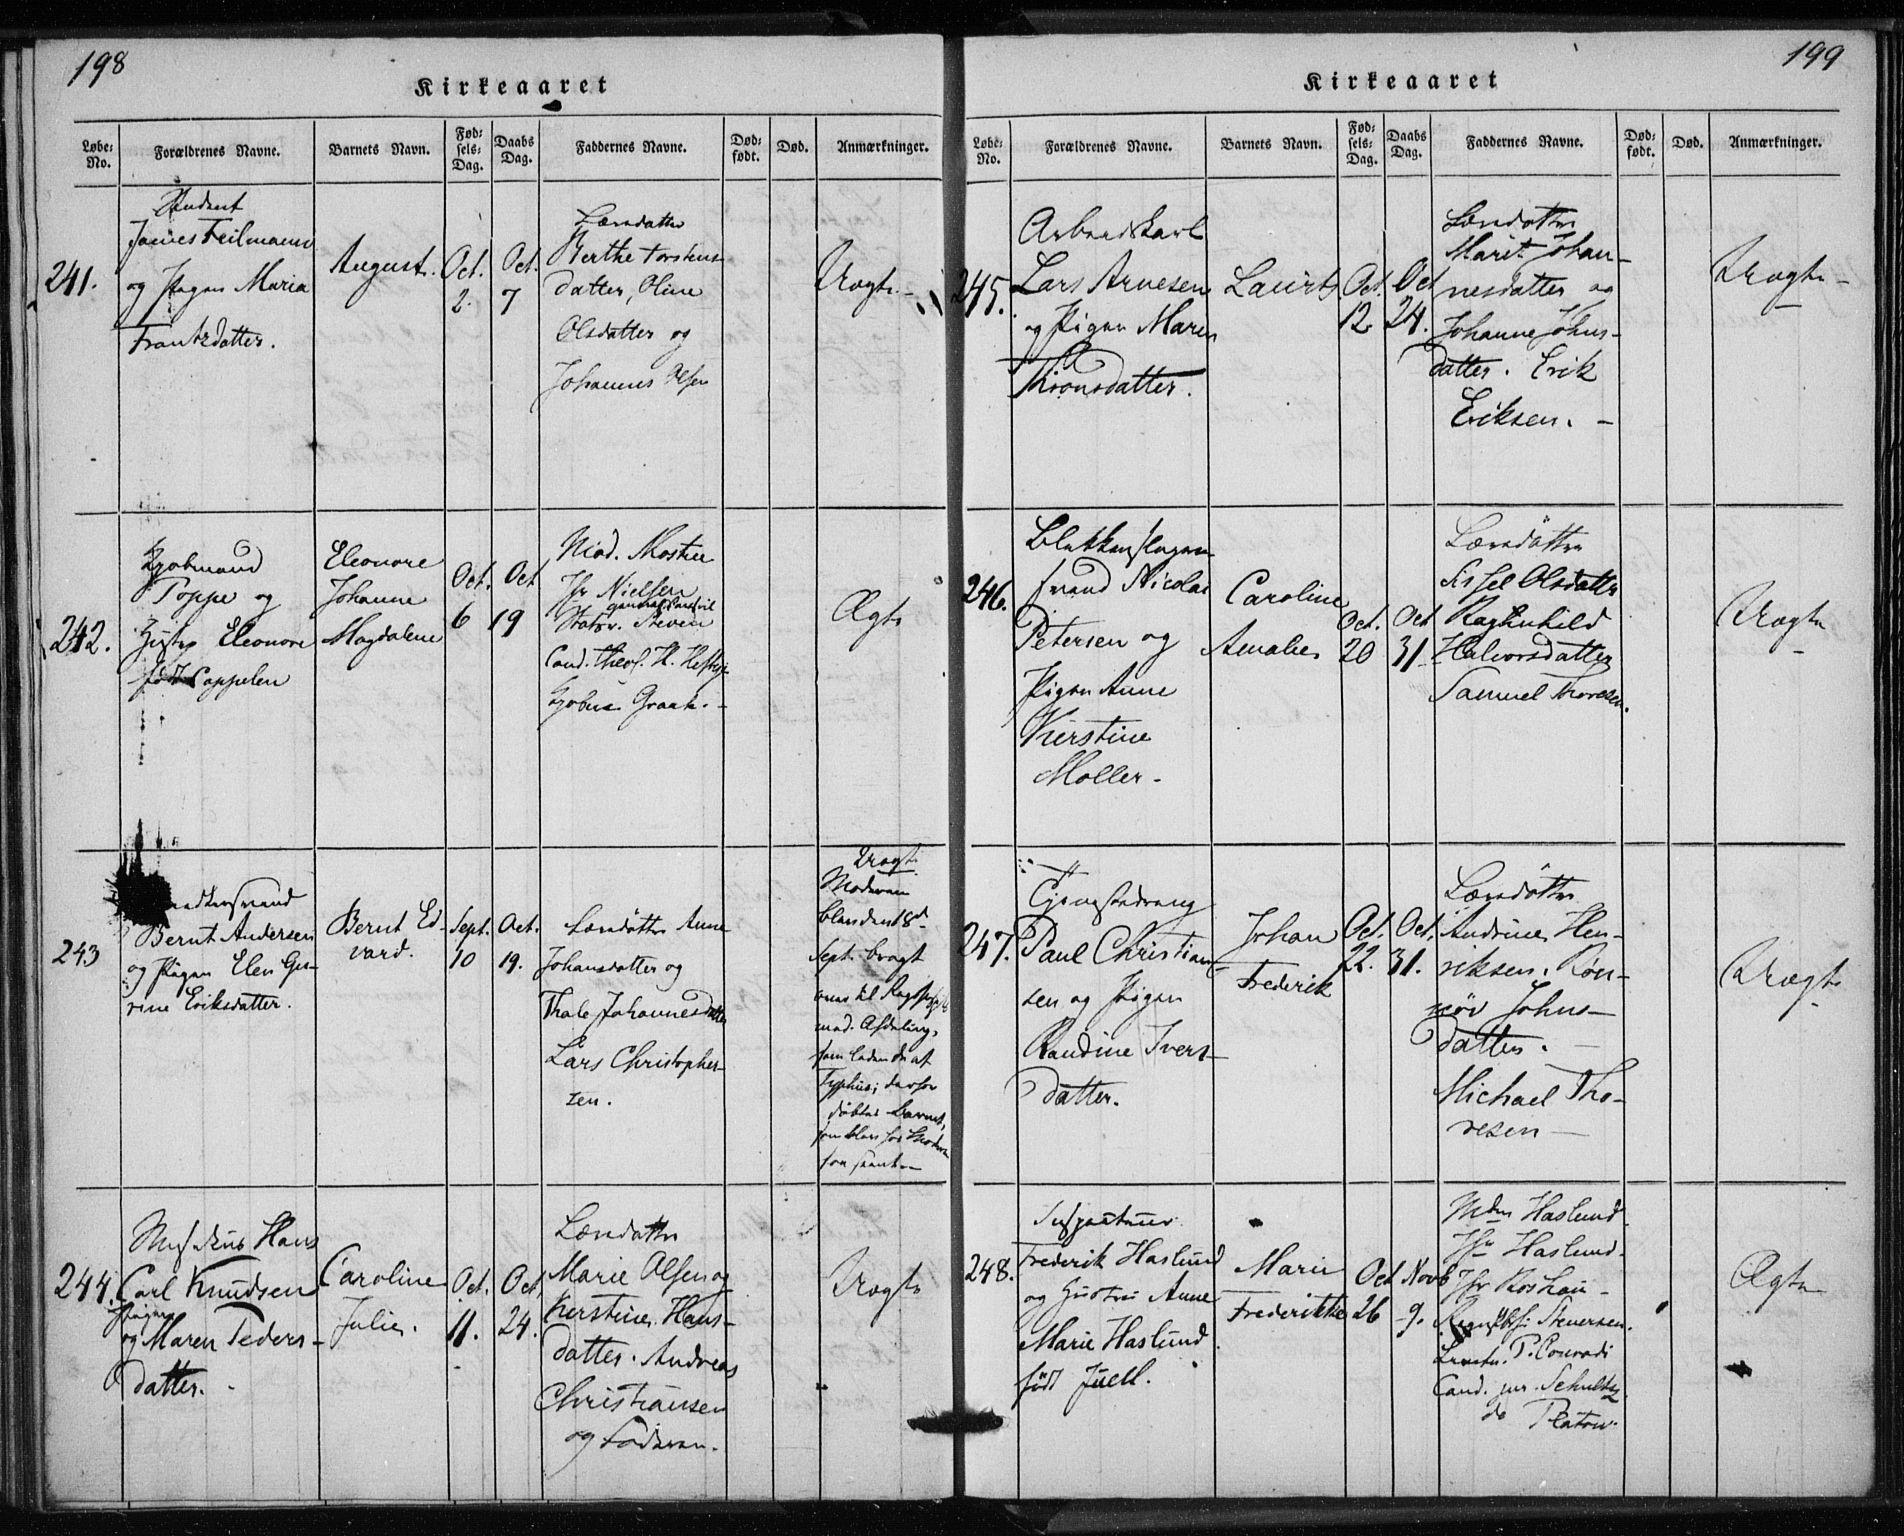 198
Kirkeaaret
Løbe-No. Forældrenes Navne. Barnets Navn. Fødsels-Dag. Daabs Dag. Faddernes Navne. Dødfødt. Død. Anmærkninger.
241.
Student
og Pigen Maria
Frantzdatter.
August.
Oct.
2.
Oct.
7
Berthe Torstens
datter, Oline
Olsdatter og
Johannes Olsen
Uægte.
242.
Kjøbmand
Poppe og
Hustru Eleonore
født Cappelen
Eleonore
Johanne
Magdalene
Oct.
6
Oct
19
Mad. Mostue
Jfr Nielsen
Cand. theol. H.
Ægte
243
Bernt Andersen
og Pigen Elen Gu-
rine Eriksdatter.
Bernt Ed-
vard.
Sept.
10
Oct.
19.
Anne
Johansdatter og
Thale Johannesdatter
Lars Christopher-
sen.
Uægte
Moderen
blev den 18de
Sept. bragt
med. Afdeling,
som lidende af
Typhus; derfor
døbtes Barnet,
244.
Musikus Hans
Carl Knudsen
Pigen
og Maren Peders-
datter.
Caroline
Julie.
Oct.
11.
Oct.
24.
Marie Olsen og
Kerstine Hans-
datter. Andreas
Christiansen
og Faderen.
Uægte
199
Kirkeaaret
Løbe-No. Forældrenes Navne. Barnets Navn. Fødsels-Dag. Daabs Dag. Faddernes Navne. Dødfødt. Død. Anmærkninger.
245.
Arbeidskarl
Lars Arnesen
og Pigen Maren
Thronsdatter.
Lauritz
Oct.
12.
Oct
24.
Marit Johan-
nesdatter og
Johanne Johns-
datter. Erik
Eriksen. -
Uægte -
246.
Blikkenslager-
svend Nicolai
Petersen og
Pigen Anne
Kierstine
Møller.
Caroline
Amalie
Oct.
20
Oct
31
Sissel Olsdatter
Ragnhild
Halvorsdatter
Samuel Thoresen.
Uægte
247.
Paul Christian-
sen og Pigen
Randine Ivers-
datter.
Johan
Frederik
Oct.
22.
Oct.
31.
Andrine Hen-
riksen. Røn-
nøv Johns-
datter.
Michael Tho-
resen
Uægte
248.
Inspecteur
Frederik Haslund
og Hustru Anne
Marie Haslund
født Juell.
Marie
Frederikke
Oct
26
Novb
9.
Mdm Haslund.
Jfr Haslund.
Stenersen.
P. Conradi
Cand. jur. Schultz
do Platou.
Ægte